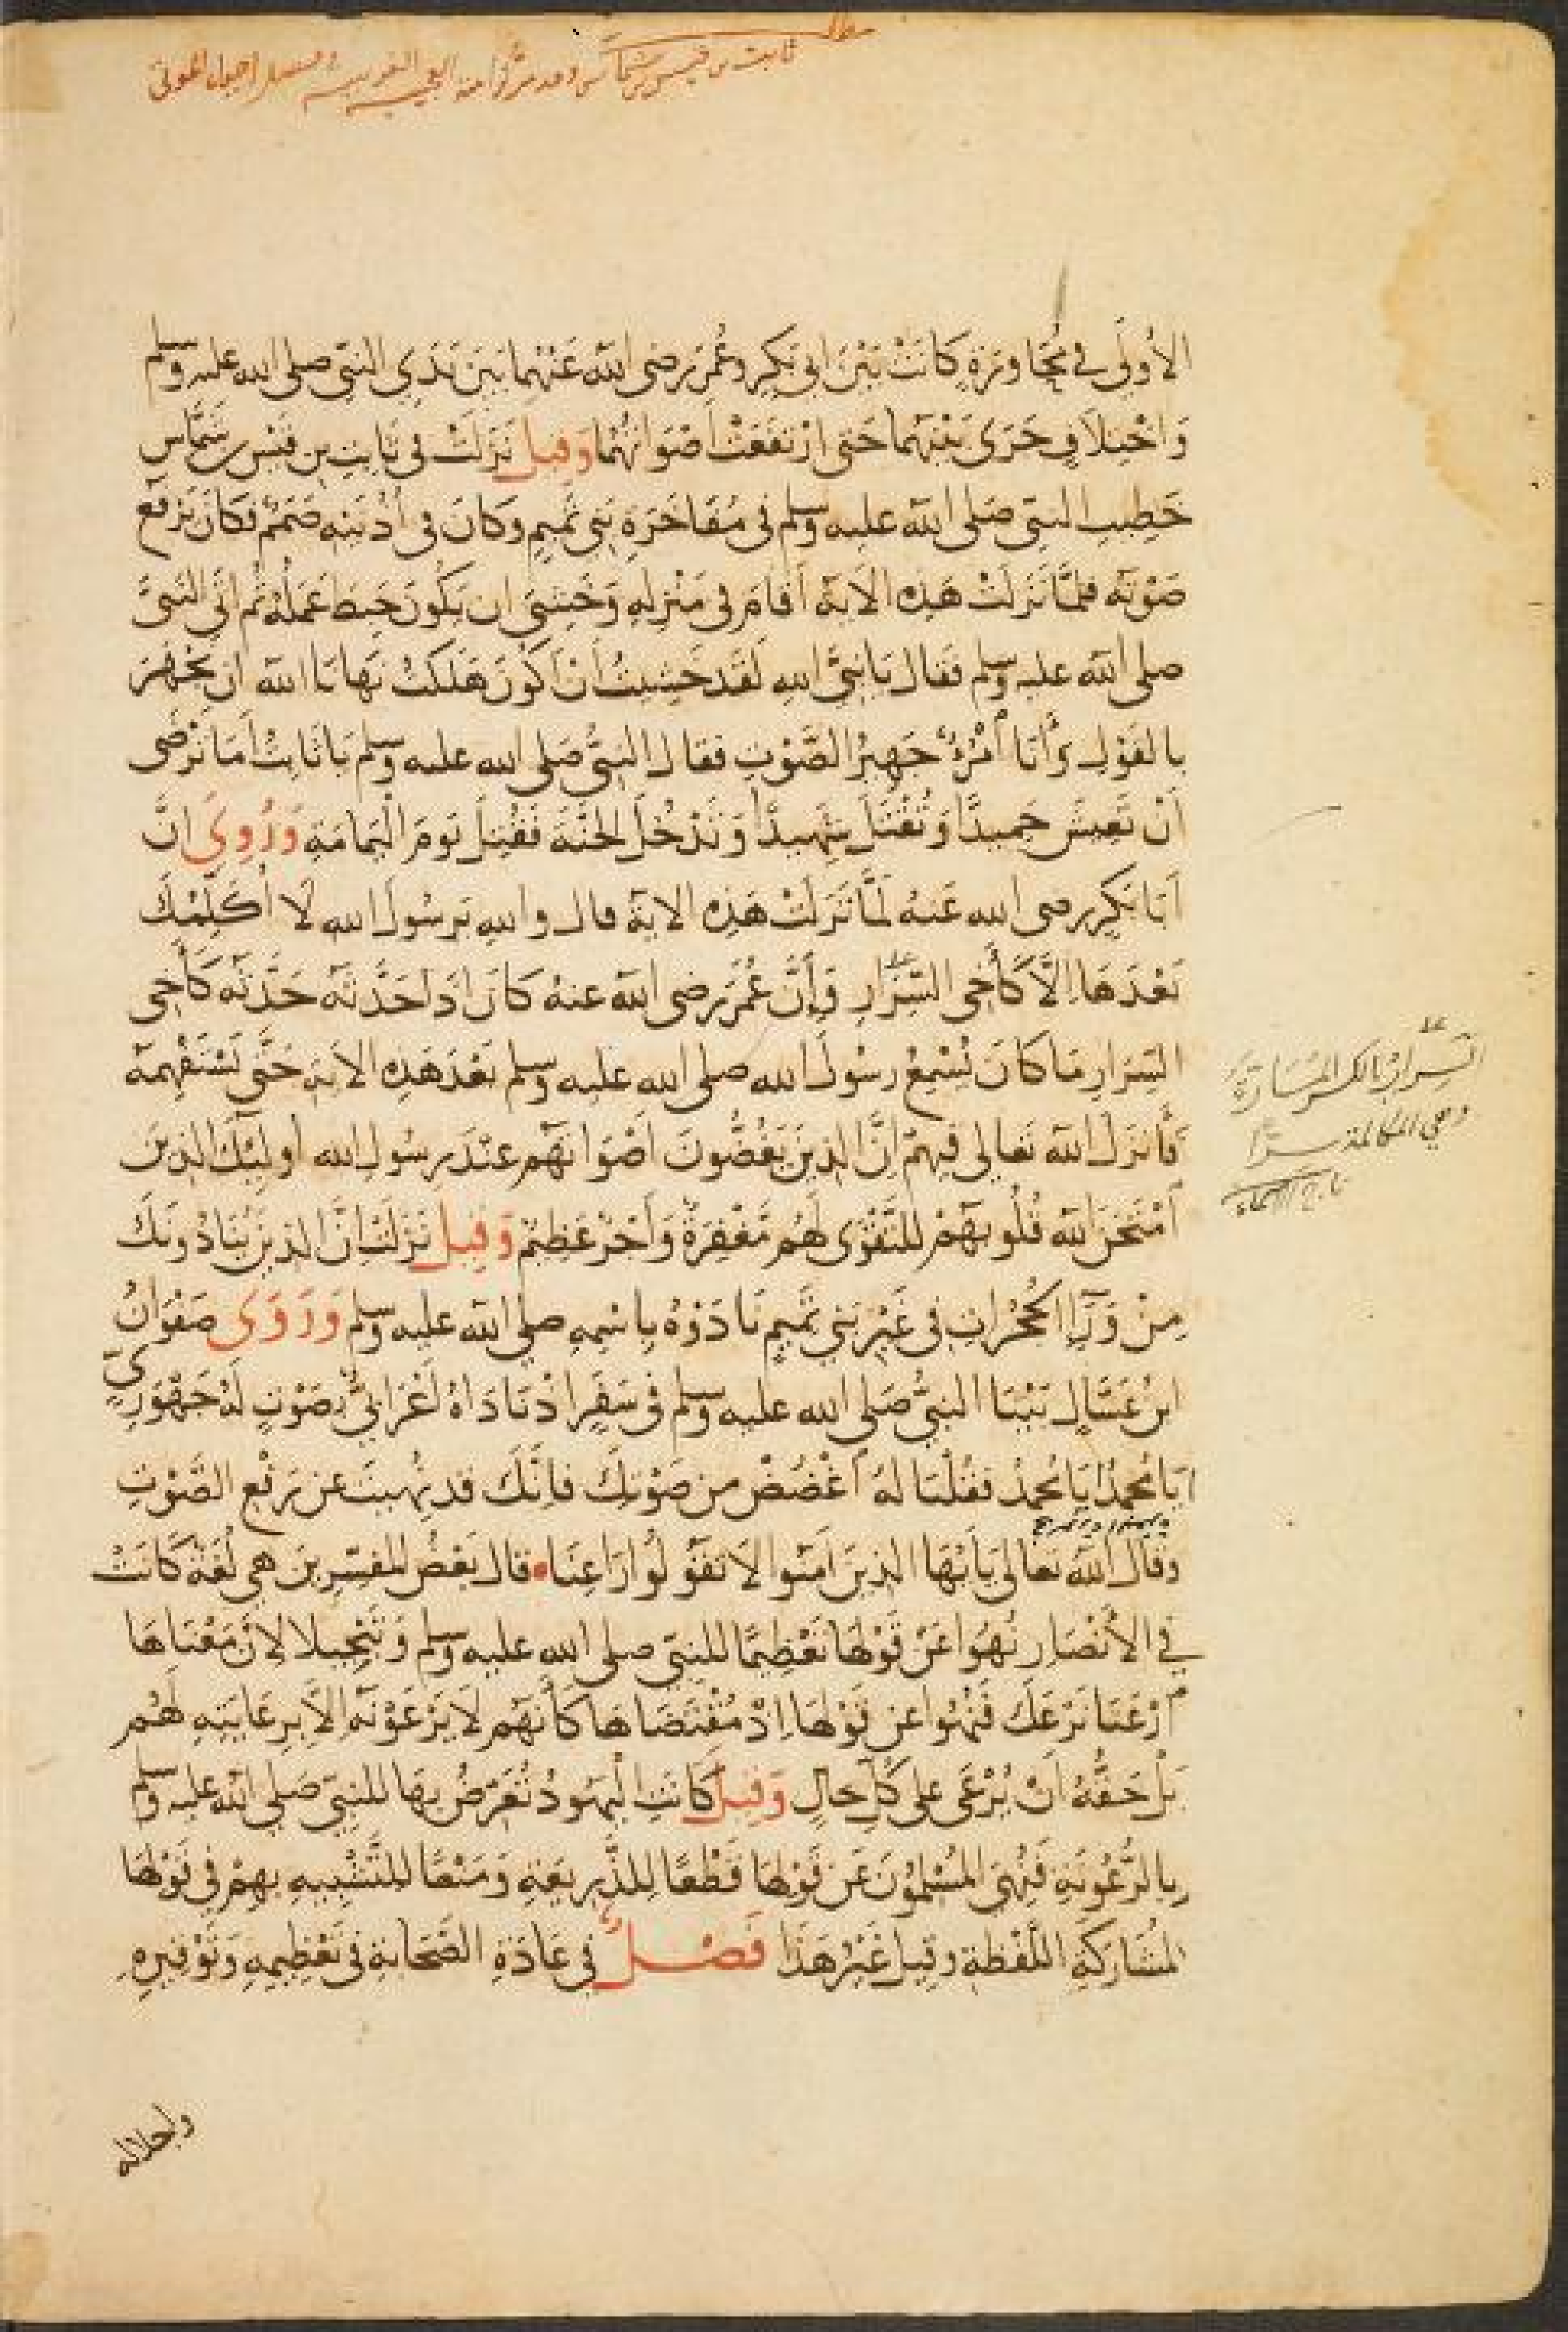 مطلب
ثابت بن قيس بن شماس وقد مر ذكرا منه الغريبة فصل احياء الموتى
الأُولَى في مُحَاوَرَةٍ كَانَتْ بَيْنَ ابي بَكرٍ وعُمَرَ رضى اللهُ عَنْهُما بَيْنَ يَدَيِ النبيّ صلى الله عليه وسلم
وَاخْتِلَافٍ جَرَى بَيْنَهُما حَتى ارْتَفَعَتْ أَصْوَاتُهُمَا وَقيل نَزَلَتْ في ثَابِتِ بن قَيْسِ بن شَمَّاسٍ
خَطِيبِ النبيّ صَلى الله عليه وسلم في مُفَاخَرَةِ بَني تَمِيمٍ وكَانَ في أُذُنَيْهِ صَمَمٌ فَكَانَ يَرْفَع
صَوْتَهُ فلمَّا نَزَلَتْ هَذِه الاية أَقَامَ في مَنْزِلِهِ وَخَشِىَ ان يَكُونَ حَبِطَ عَمَلُهُ ثم اتى النبىَّ
صلى الله عليه وسلم فَقال يَا نَبِىَّ اللهِ لَقَدْ خَشِيتُ أَنْ أَكُونَ هَلَكْتُ نَهَانَا الله ان نَجْهَرَ
بالقَوْلِ وَأَنَا امْرُؤٌ جَهِيرُ الصَّوْتِ فقال النبىُّ صَلى الله عليه وسلم يا ثَابِتُ أَمَا تَرْضَى
أَنْ تَعِيشَ حَمِيدًا وَتُقْتَلَ شَهِيدًا وَتَدْخُلَ الجَنَّةَ فَقُتِلَ يَومَ الْيَمَامَةِ وَرُوِيَ انَّ
أَبَا بَكرٍ رضى الله عَنهُ لمَّا نَزَلَتْ هَذِه الاية قال والله يَرَسُولَ الله لَا أُكَلِّمُكَ
بَعْدَهَا اِلَّا كَأَخِى السِّرَارِ وَأَنَّ عُمَرَ رضى اللهُ عنهُ كَانَ اذَا حَدَّثَهُ حَدَّثَهُ كَأَخِى
السِّرَارِ مَا كَانَ يُسْمِعُ رسُولَ الله صلى الله عليه وسلم بَعْدَ هَذِه الايَةِ حَتى يَسْتَفْهِمَهُ
فَأَنْزَلَ الله تَعالى فيهِمْ اِنَّ الذِينَ يَغُضُّونَ أَصْوَاتَهُم عِنْدَ رسُولِ الله أُولئِكَ الذِينَ
امْتَحَنَ الله قُلُوبَهُمْ لِلتَّقْوَى لَهُم مَّغْفِرَةٌ وَأَجْرٌ عَظِيمٌ وَقيل نَزَلَتْ اِنَّ الذِينَ يُنَادُونَكَ
مِنْ وَرَاءِ الحُجُرَاتِ فى غَيْرِ بَني تَمِيمٍ نَادَوْهُ بِاسْمِهِ صلى الله عليه وسلم وَرَوَى صَفْوَانُ
ابنُ عَسَّالٍ بَيْنَا النبيُّ صَلى الله عليه وسلم فى سَفَرٍ اذْ نَادَاهُ أَعْرَابيٌّ بِصَوْتٍ لَهُ جَهْوَرِيٍّ
أَيَا مُحمدُ أَيَا مُحمدُ فَقُلْنَا لَهُ اغْضُضْ من صَوْتِكَ فَاِنَّكَ قد نُهِيتَ عن رَفْعِ الصَّوْتِ
وقَال الله تَعالى يَا أَيُّهَا الذِينَ آمَنُوا لَا تَقُولُوا رَاعِنَا قال بَعْضُ المفسِّرِينَ هي لُغَةٌ كَانَتْ
في الأَنْصَارِ نُهُوا عَنْ قَوْلِهَا تَعْظِيمًا للنبيّ صلى الله عليه وسلم وَتَبْجِيلا لِأَنَّ مَعْنَاهَا
ارْعَنَا نَرْعَكَ فَنُهُوا عن قَوْلِهَا اِذْ مُقْتَضَاهَا كَأَنَّهُم لَا يَرْعَوْنَهُ اِلَّا بِرِعَايَتِهِ لَهُم
بَلْ حَقُّهُ أَنْ يُرْعَى على كُلِّ حالٍ وَقيل كَانَتِ الْيَهُودُ تُعَرِّضُ بِهَا للنبيّ صَلى الله عليه وسلم
بِالرُّعُونَةِ فَنُهِىَ المُسْلِمُونَ عَن قَوْلِهَا قَطْعًا لِلذَّرِيعَةِ وَمَنْعًا للتَّشْبِيهِ بِهِمْ في قَوْلِهَا
لِمُشَارَكَةِ اللَّفْظَةِ وَقِيلَ غَيْرُ هَذَا فَصْلٌ في عَادَةِ الصَّحَابَةِ في تَعْظِيمِهِ وَتَوْقِيرِهِ
السِّرار بالكسر المسَارّة
وهي المكالمة سرًّا
تاج الاسماء
واجلاله